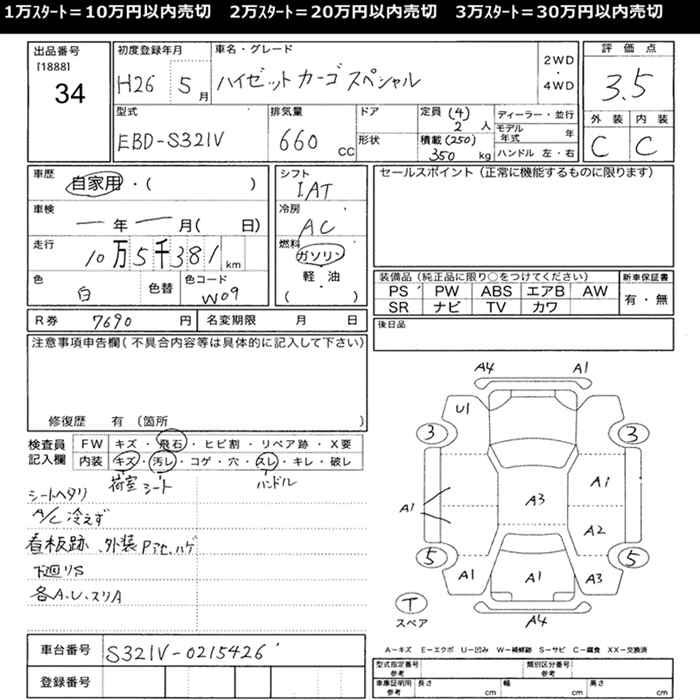 1万スタート＝10万円以内売切　2万スタート＝20万円以内売切　3万スタート＝30万円以内売切
出品番号
[1888]
34
初度登録年月
H26 5月
車名・グレード
ハイゼットカーゴスペシャル
2WD
・
4WD
評価点
3.5
外装 内装
C C
型式
EBD-S321V
排気量
660 CC
ドア
形状
定員 (4)
2 人
積載 (250)
350 kg
ディーラー・並行
モデル年式 年
ハンドル 左・右
車歴
自家用・( )
車検
— 年 — 月( 日)
走行
10万5千381 km
色
白 色替
色コード
W09
シフト
IAT
冷房
AC
燃料
ガソリン
軽・油
( )
セールスポイント（正常に機能するものに限ります）
装備品（純正品に限り○をつけてください）
PS PW ABS エアB AW
SR ナビ TV カワ
新車保証書
有・無
R券 7690 円 名変期限 月 日
後日品
注意事項申告欄（不具合内容等は具体的に記入して下さい）
修復歴 有（箇所 ）
検査員
記入欄
FW キズ・飛石・ヒビ割・リペア跡・X要
内装 キズ・汚レ・コゲ・穴・スレ・キレ・破レ
荷室 シート ハンドル
シートヘタリ
A/C 冷えず
看板跡、外装Pアセ、ハゲ
下廻りS
各A、U、スリA
A4 A1
U1
3 3
A1 A3 A1
A2
5 5
A1 A1 A3
T
スペア
A4
A－キズ E－エクボ U－凹み W－補修跡 S－サビ C－腐食 XX－交換済
車台番号 S321V-0215426
登録番号
型式指定番号
参考
類別区分番号
参考
車庫証明用
参考
長さ cm 幅 cm 高さ cm